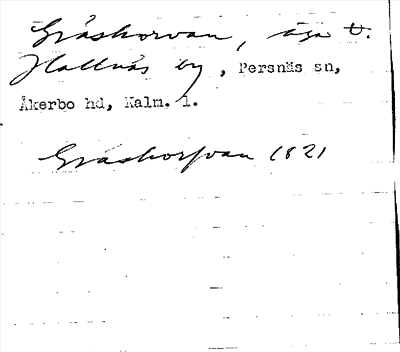 Gråskorvan, äga t.
Hallnäs by, Persnäs sn,
Åkerbo hd, Kalm. l.
Gråskorfvan 1821